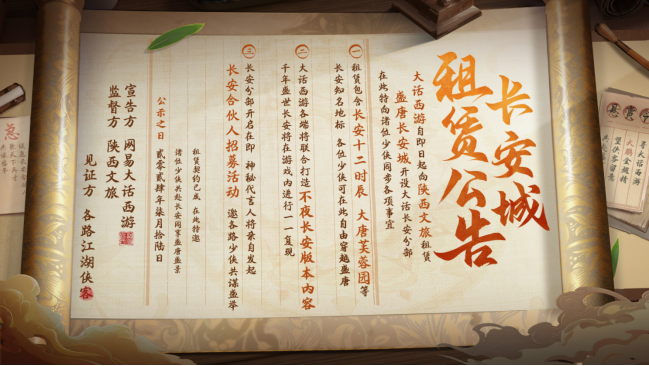 长安城
租赁公告
大话西游自即日起向陕西文旅租赁
盛唐长安城开设大话长安分部
在此特向诸位少侠同步各项事宜
一
租赁包含长安十二时辰 大唐芙蓉园等
长安知名地标 各位少侠可在此自由穿越盛唐
二
大话西游各端将联合打造不夜长安版本内容
千年盛世长安将在游戏内进行一一复现
三
长安分部开启在即 神秘代言人将亲自发起
长安合伙人招募活动 邀各路少侠共谋盛举
租赁契约已成 在此特邀
诸位少侠共赴长安同享盛唐盛景
公示之日 贰零贰肆年柒月拾陆日
宣告方 网易大话西游
监督方 陕西文旅
见证方 各路江湖侠客